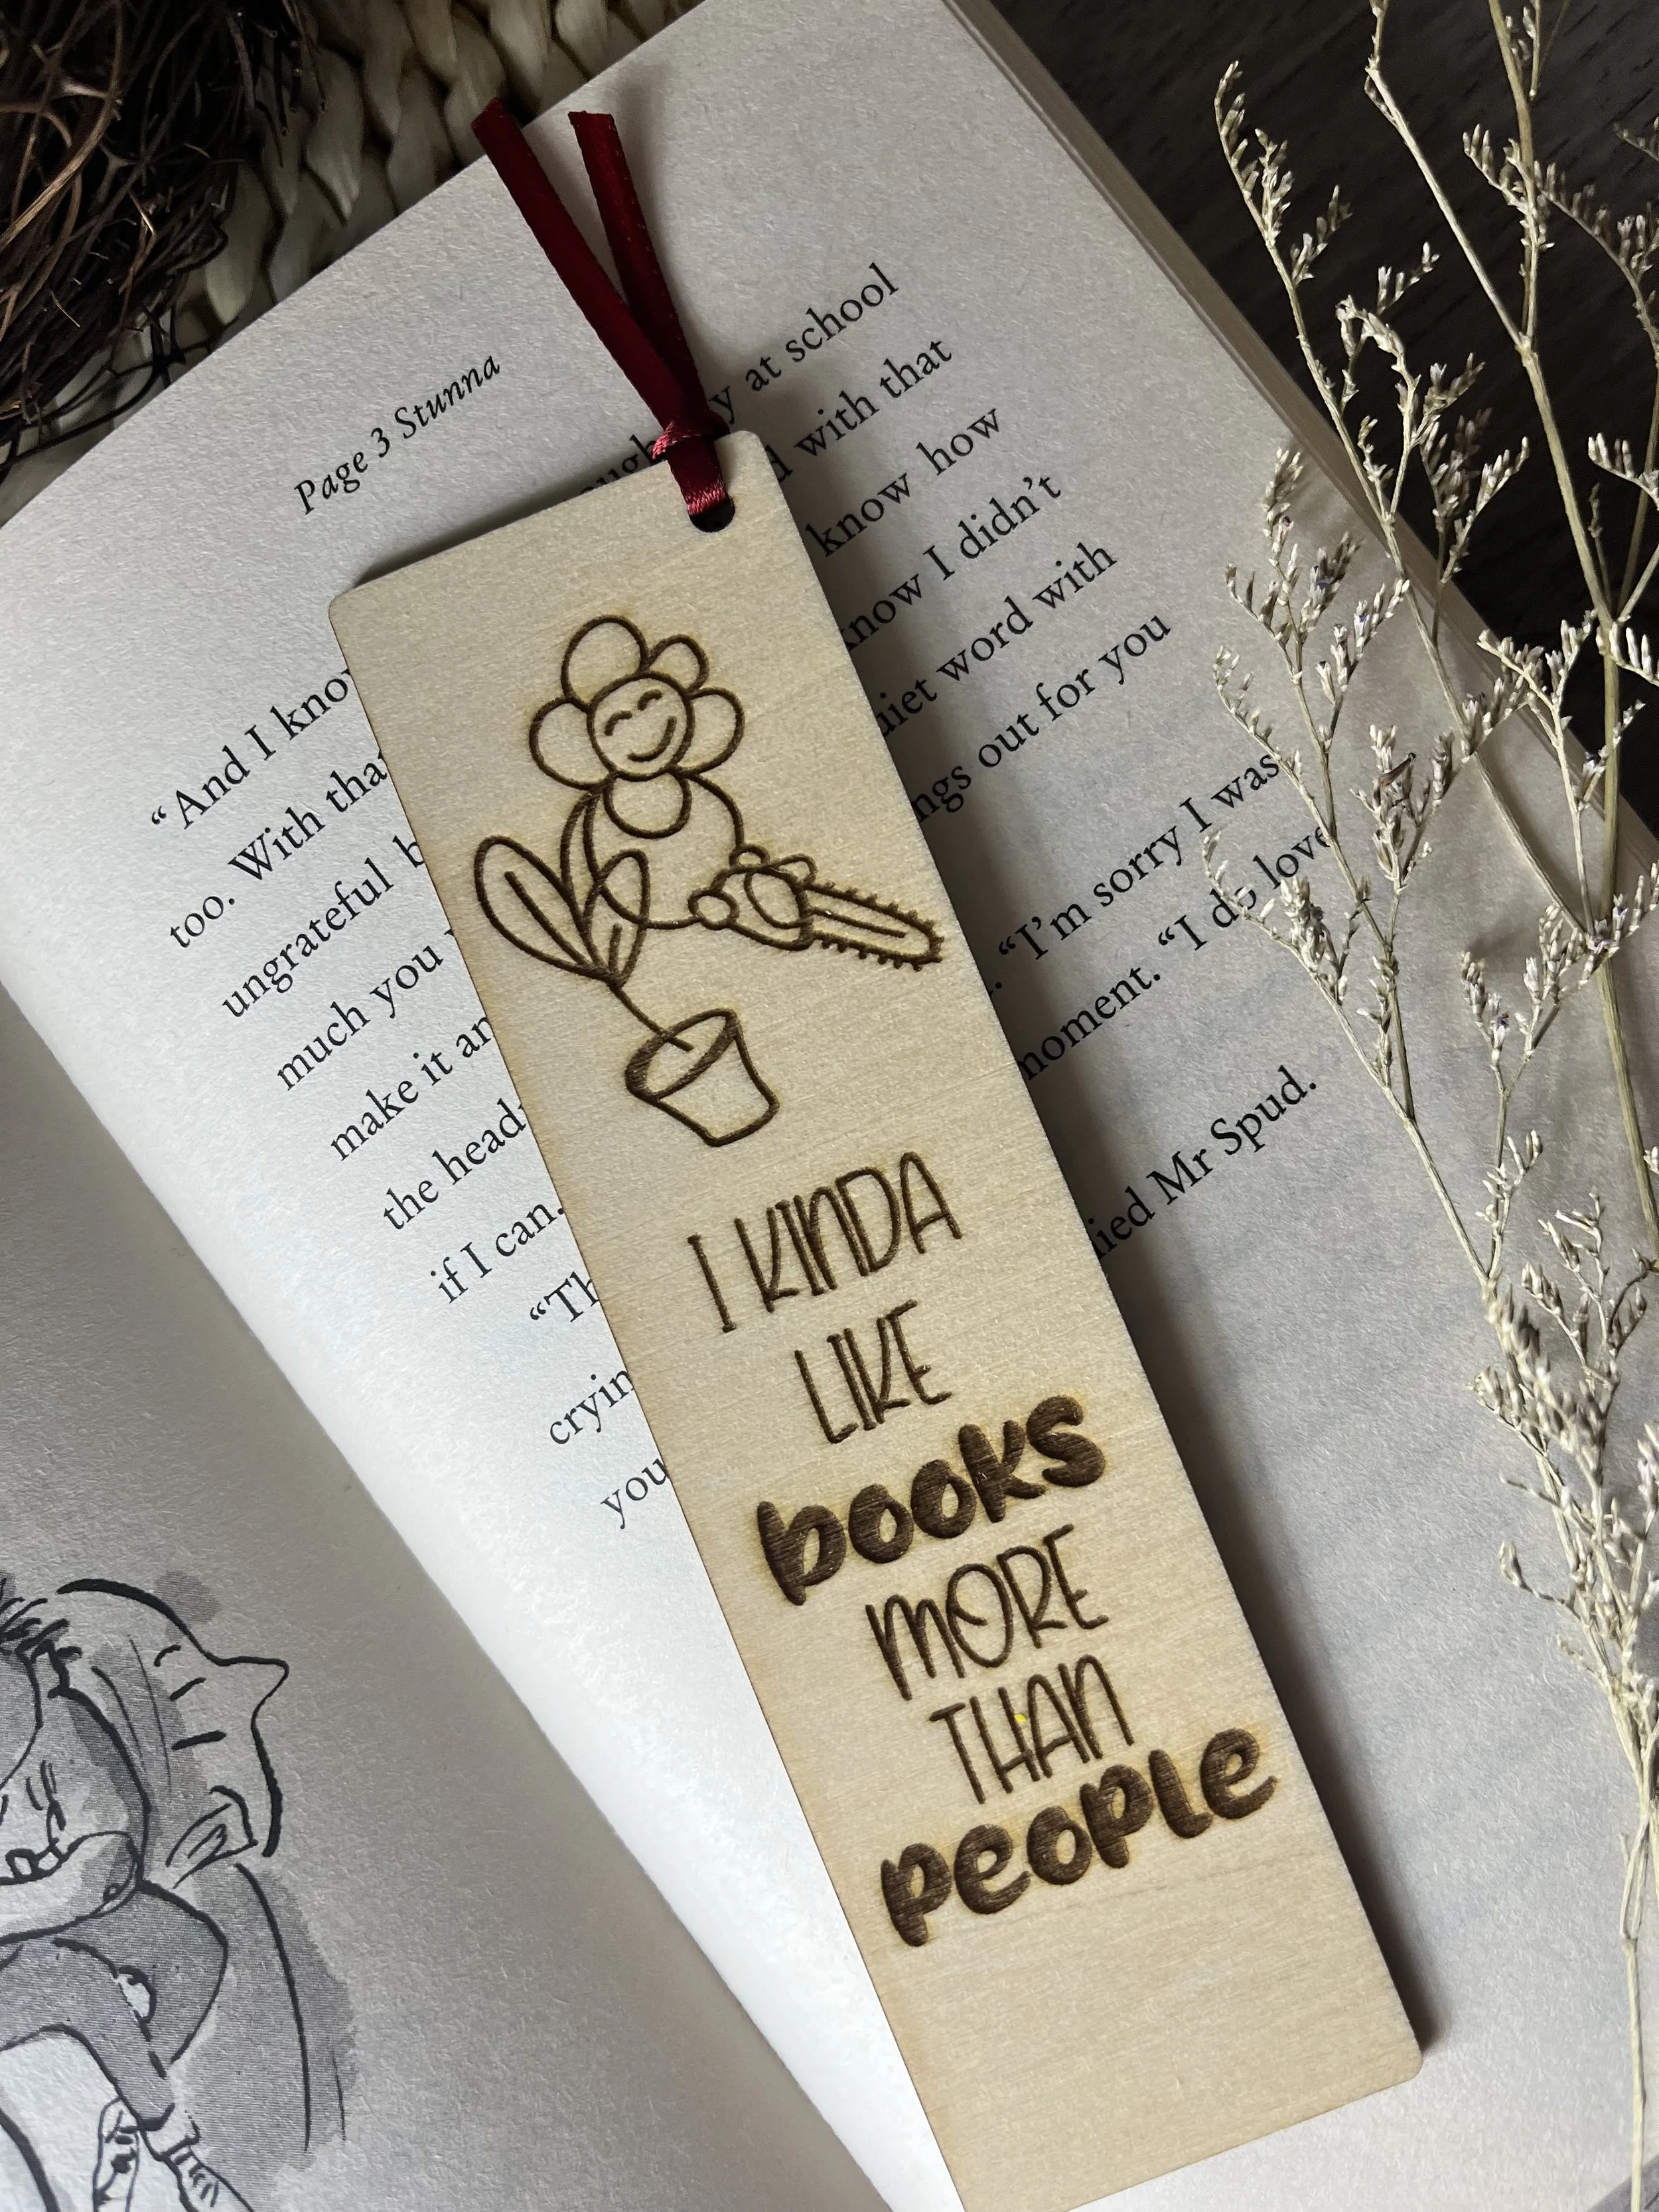 Page 3 Stunna
“And I know
at school
too. With that
with that
ungrateful
know how
much you
know I didn’t
make it
quiet word with
the head
things out for you
if I can.
crying
“I’m sorry I was
you
moment. “I do love
Mr Spud.
I KINDA
LIKE
books
MORE
THAN
people